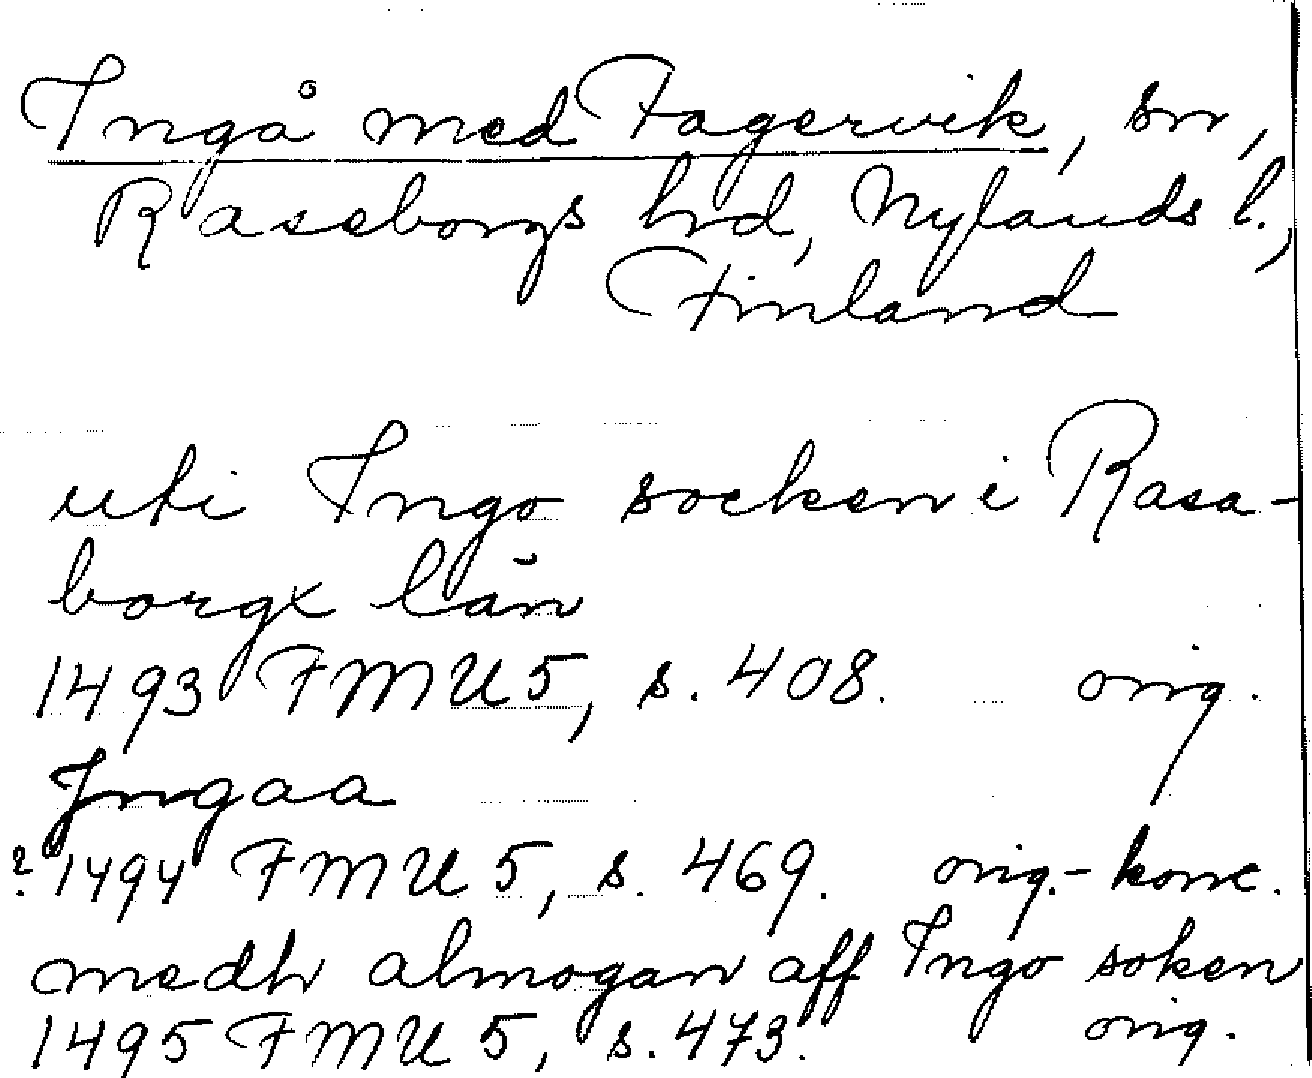 Ingå med Fagervik, sn,
Raseborgs hd, Nylands l.,
Finland
uti Ingo socken i Rasa-
borgx län
1493 FMU 5, s. 408. orig.
Jngaa
? 1494 FMU 5, s. 469. orig.-konc.
medh almogan aff Ingo soken
1495 FMU 5, s. 473. orig.